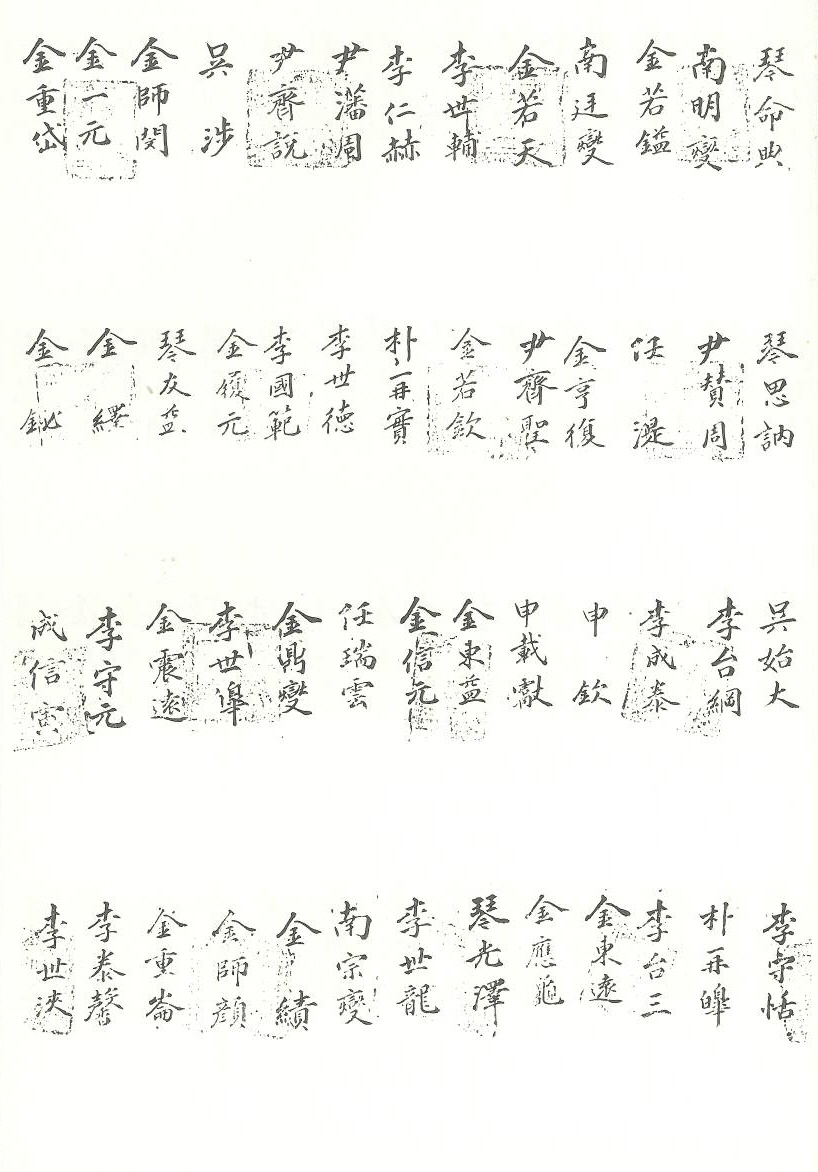 琴命典
南明燮
金若鎰
南廷燮
金若天
李世輔
李仁赫
尹瀋周
尹齊說
吳涉
金師閔
金一元
金重岱
琴思訥
尹贊周
任湜
金亨復
尹齊聖
金若欽
朴再實
李世德
李國範
金復元
琴友益
金繹
金
吳始大
李台綱
李成泰
申欽
申載獻
金東益
金信元
任瑞雲
金鼎燮
李世皐
金震遠
李守元
成信寅
李守恬
朴再皥
李台三
金東遠
金應龜
琴光澤
李世龍
南宗燮
金績
金師顔
金重崙
李泰馨
李世浹